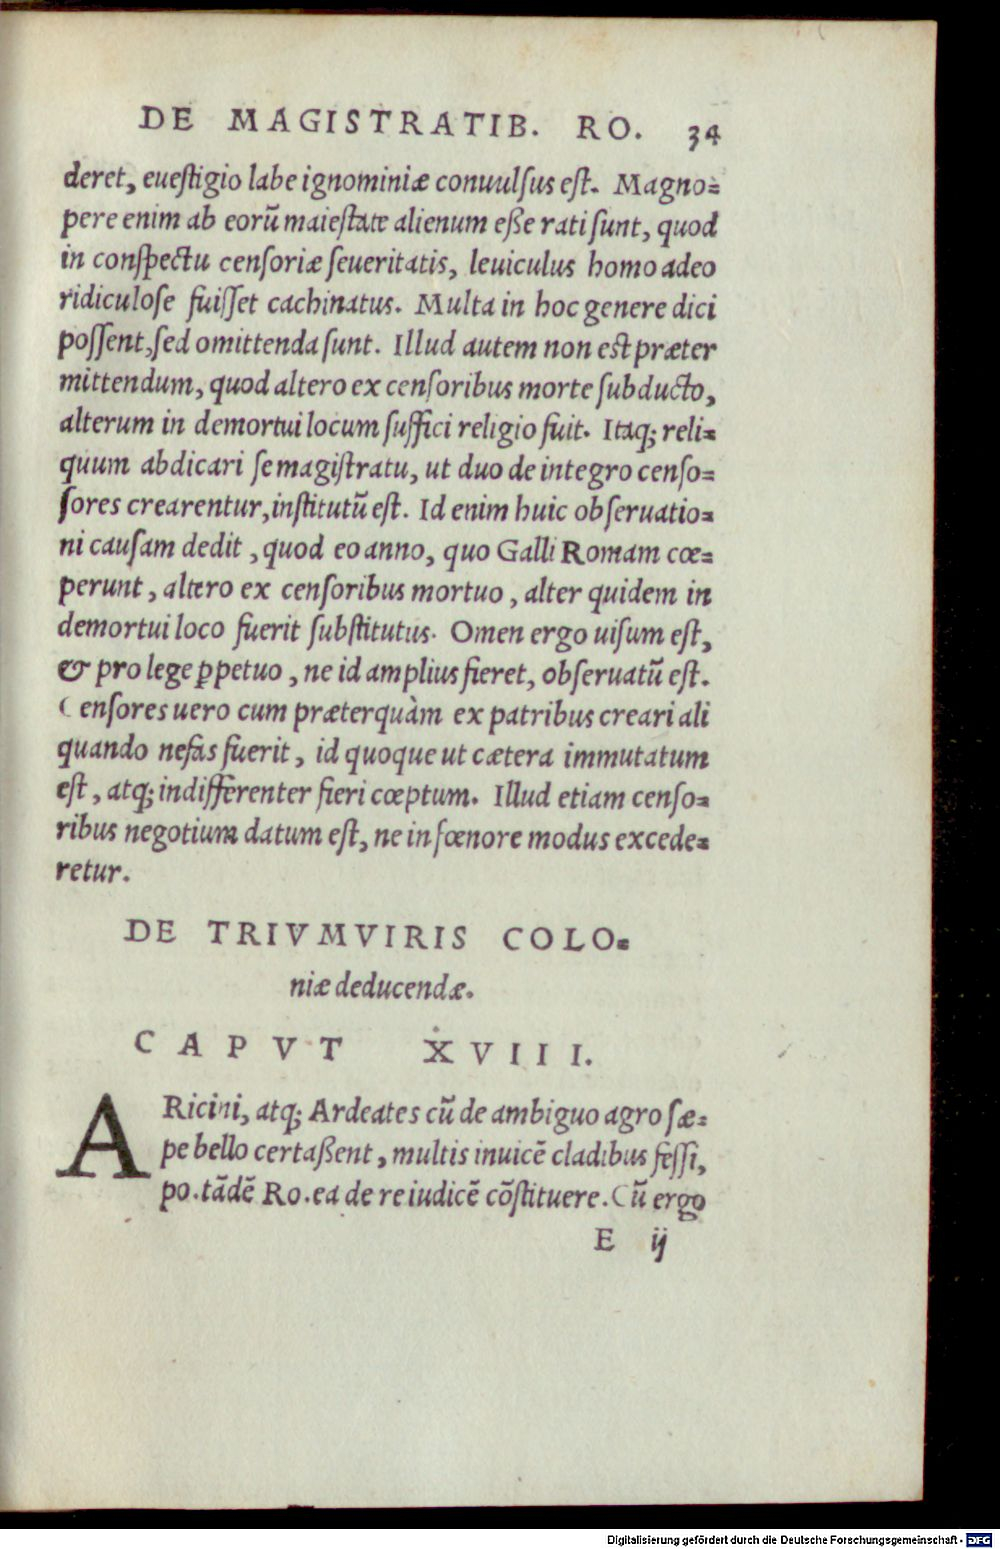 DE MAGISTRATIB. RO. 34
deret, euestigio labe ignominiæ conuulsus est. Magno=
pere enim ab eorũ maiestate alienum eße rati sunt, quod
in conspectu censoriæ seueritatis, leuiculus homo adeo
ridiculose fuisset cachinatus. Multa in hoc genere dici
possent, sed omittenda sunt. Illud autem non est præter
mittendum, quod altero ex censoribus morte subducto,
alterum in demortui locum suffici religio fuit. Itaq; reli=
quum abdicari se magistratu, ut duo de integro censo=
sores crearentur, institutũ est. Id enim huic obseruatio=
ni causam dedit, quod eo anno, quo Galli Romam cœ=
perunt, altero ex censoribus mortuo, alter quidem in
demortui loco fuerit substitutus. Omen ergo uisum est,
& pro lege ꝑpetuo, ne id amplius fieret, obseruatũ est.
Censores uero cum præterquàm ex patribus creari ali
quando nefas fuerit, id quoque ut cætera immutatum
est, atq; indifferenter fieri cœptum. Illud etiam censo=
ribus negotium datum est, ne in fœnore modus excede=
retur.
DE TRIVMVIRIS COLO=
niæ deducendæ.
CAPVT XVIII.
ARicini, atq; Ardeates cũ de ambiguo agro sæ=
pe bello certaßent, multis inuicẽ cladibus fessi,
po. tãdẽ Ro. ea de re iudicẽ cõstituere. Cũ ergo
E ij
Digitalisierung gefördert durch die Deutsche Forschungsgemeinschaft - DFG